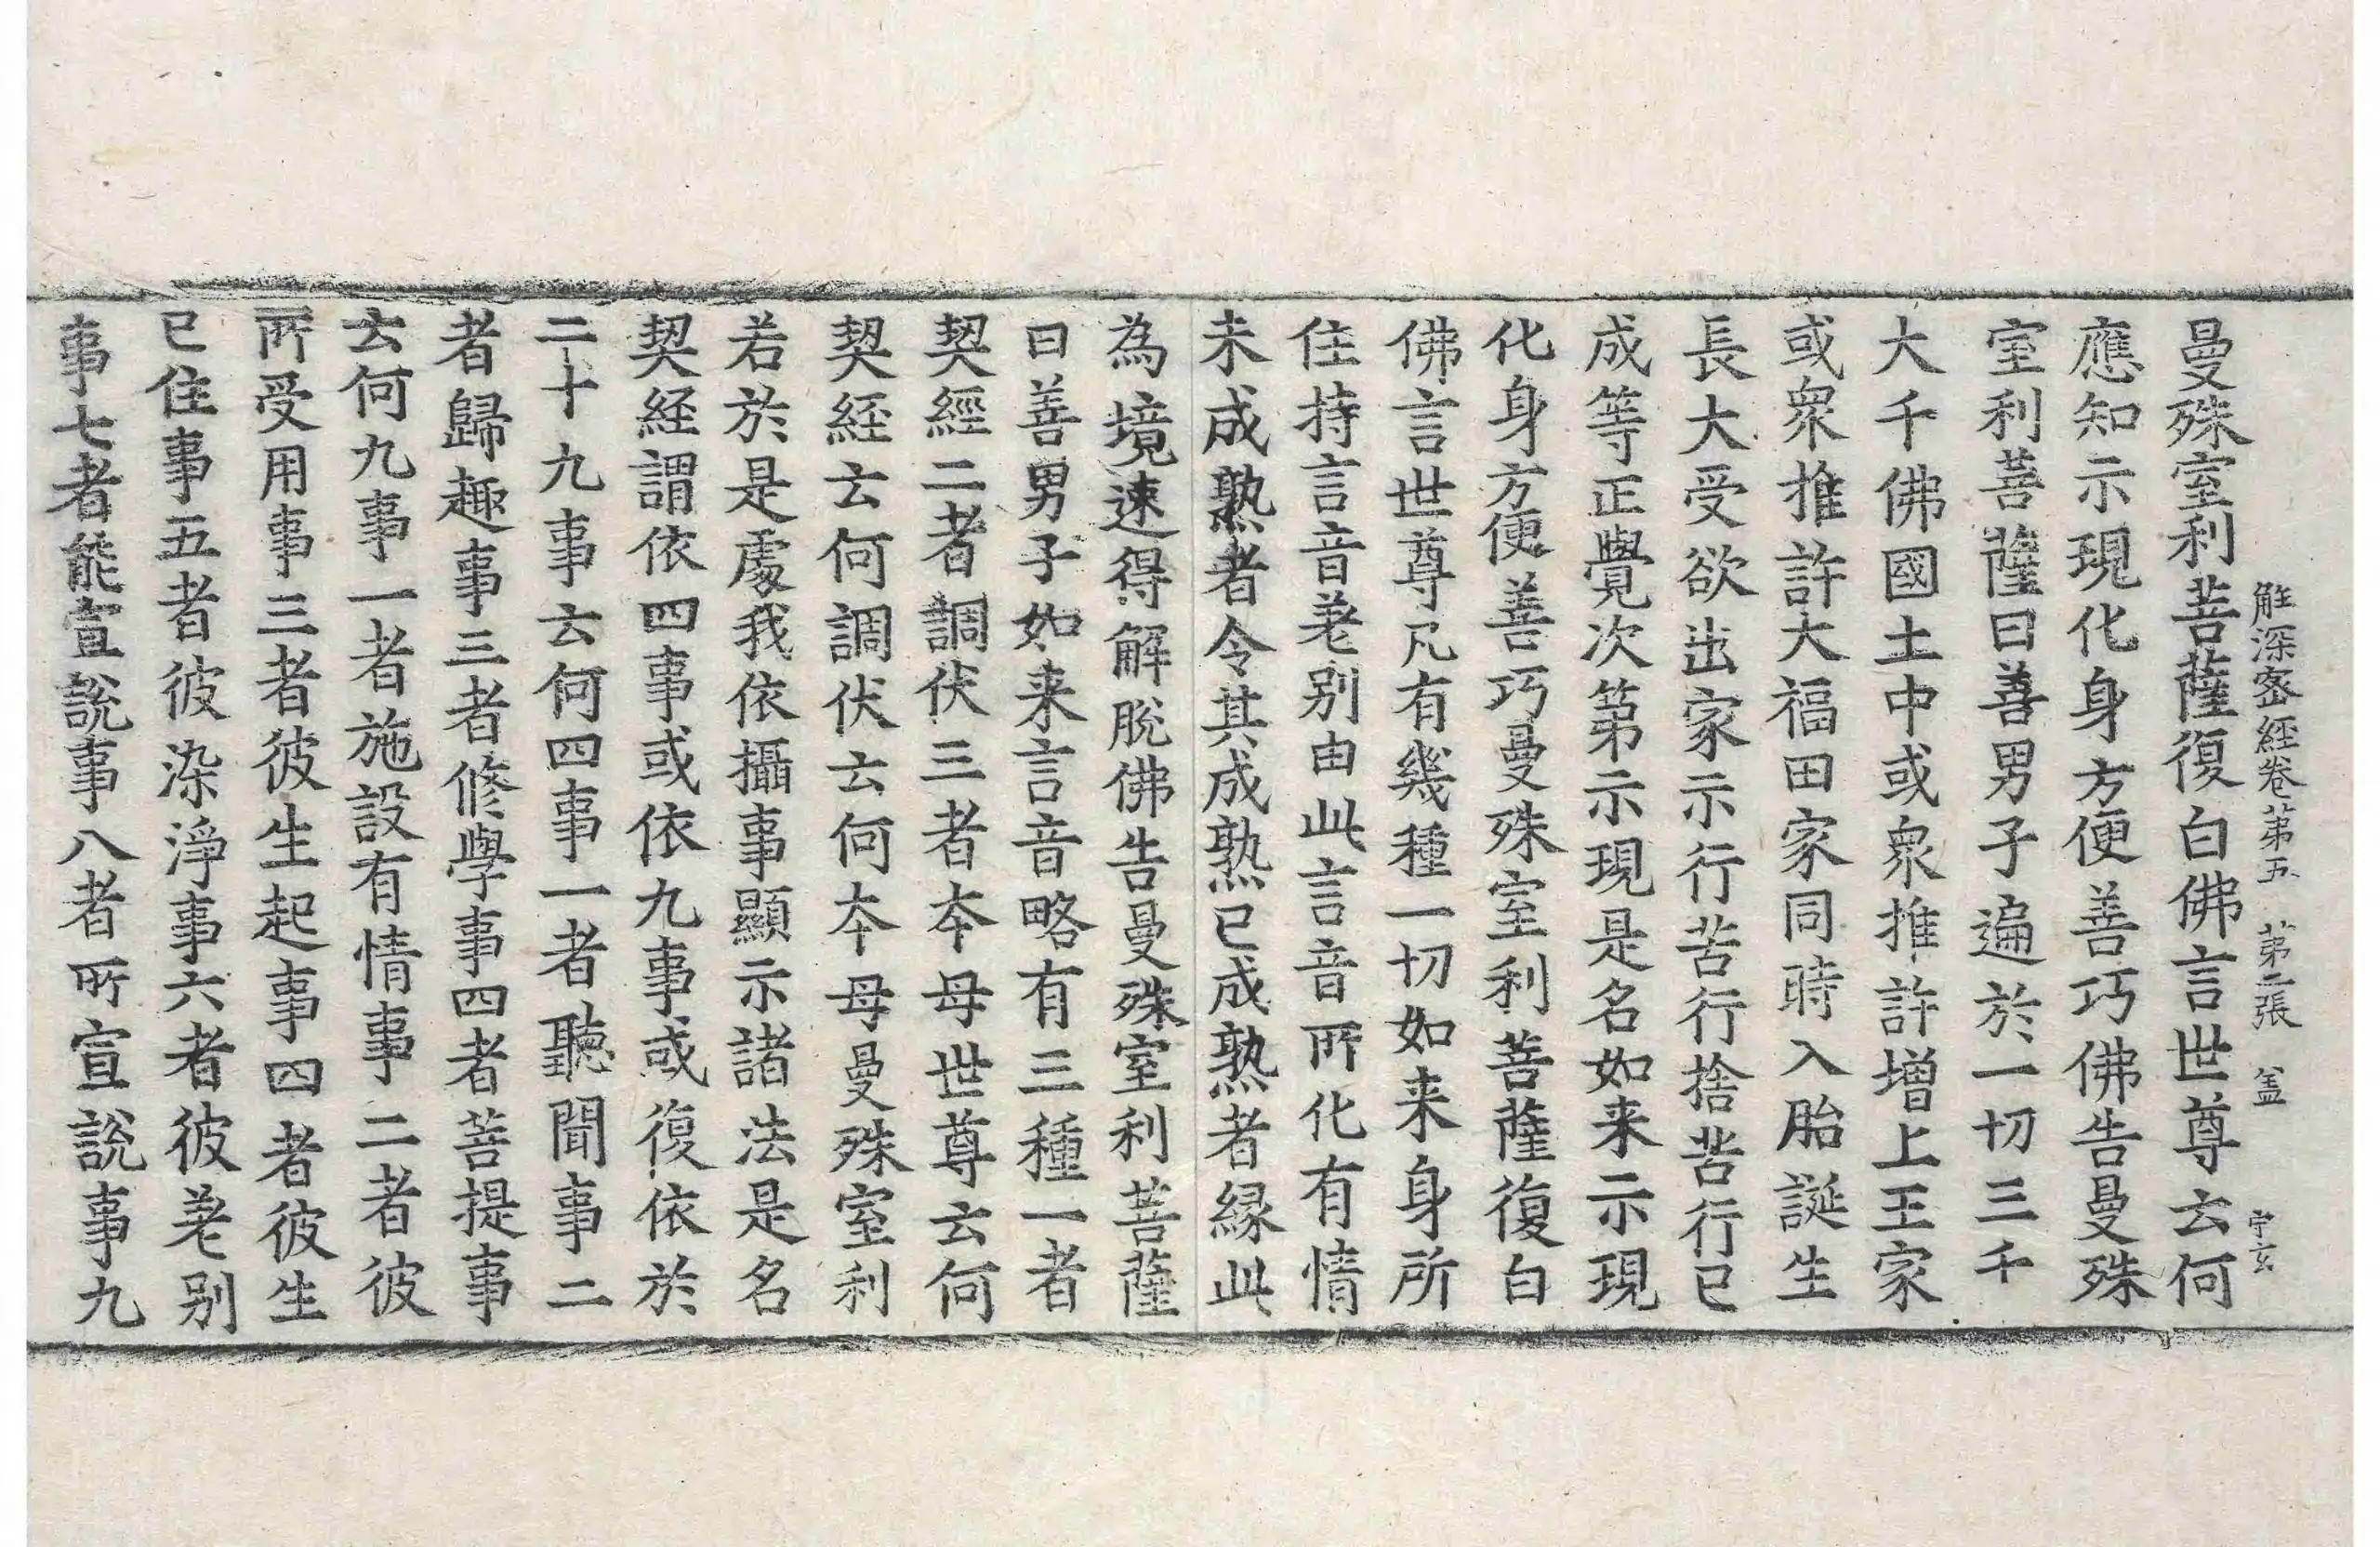 解深密経卷第五 第二張 盖 宇玄
曼殊室利菩薩復白佛言世尊云何
應知示現化身方便善巧佛告曼殊
室利菩薩曰善男子遍於一切三千
大千佛國土中或衆推許增上王家
或衆推許大福田家同時入胎誕生
長大受欲出家示行苦行捨苦行已
成等正覺次第示現是名如来示現
化身方便善巧曼殊室利菩薩復白
佛言世尊凡有幾種一切如来身所
住持言音差別由此言音所化有情
未成熟者令其成熟已成熟者縁此
為境速得解脫佛告曼殊室利菩薩
曰善男子如来言音略有三種一者
契經二者調伏三者夲母世尊云何
契経云何調伏云何夲母曼殊室利
若於是處我依攝事顯示諸法是名
契経謂依四事或依九事或復依於
二十九事云何四事一者聽聞事二
者歸趣事三者修學事四者菩提事
云何九事一者施設有情事二者彼
所受用事三者彼生起事四者彼生
已住事五者彼染淨事六者彼差別
事七者能宣說事八者所宣說事九